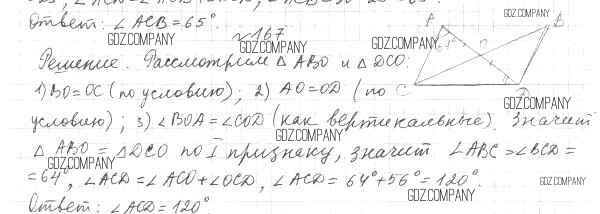 Ответ: ∠ACB = 65°.
GDZ.COMPANY
№167
GDZ.COMPANY
GDZ.COMPANY
GDZ.COMPANY
A
B
O
64°
C
D
Решение. Рассмотрим △ ABO и △ DCO:
1) BO = OC (по условию); 2) AO = OD (по
GDZ.COMPANY
условию); 3) ∠BOA = ∠COD (как вертикальные). Значит
GDZ.COMPANY
△ ABO = △ DCO по I признаку, значит ∠ABC = ∠BCD =
GDZ.COMPANY
= 64°, ∠ACD = ∠ACO + ∠OCD, ∠ACD = 64° + 56° = 120°.
GDZ.COMPANY
GDZ.COMPANY
Ответ: ∠ACD = 120°.